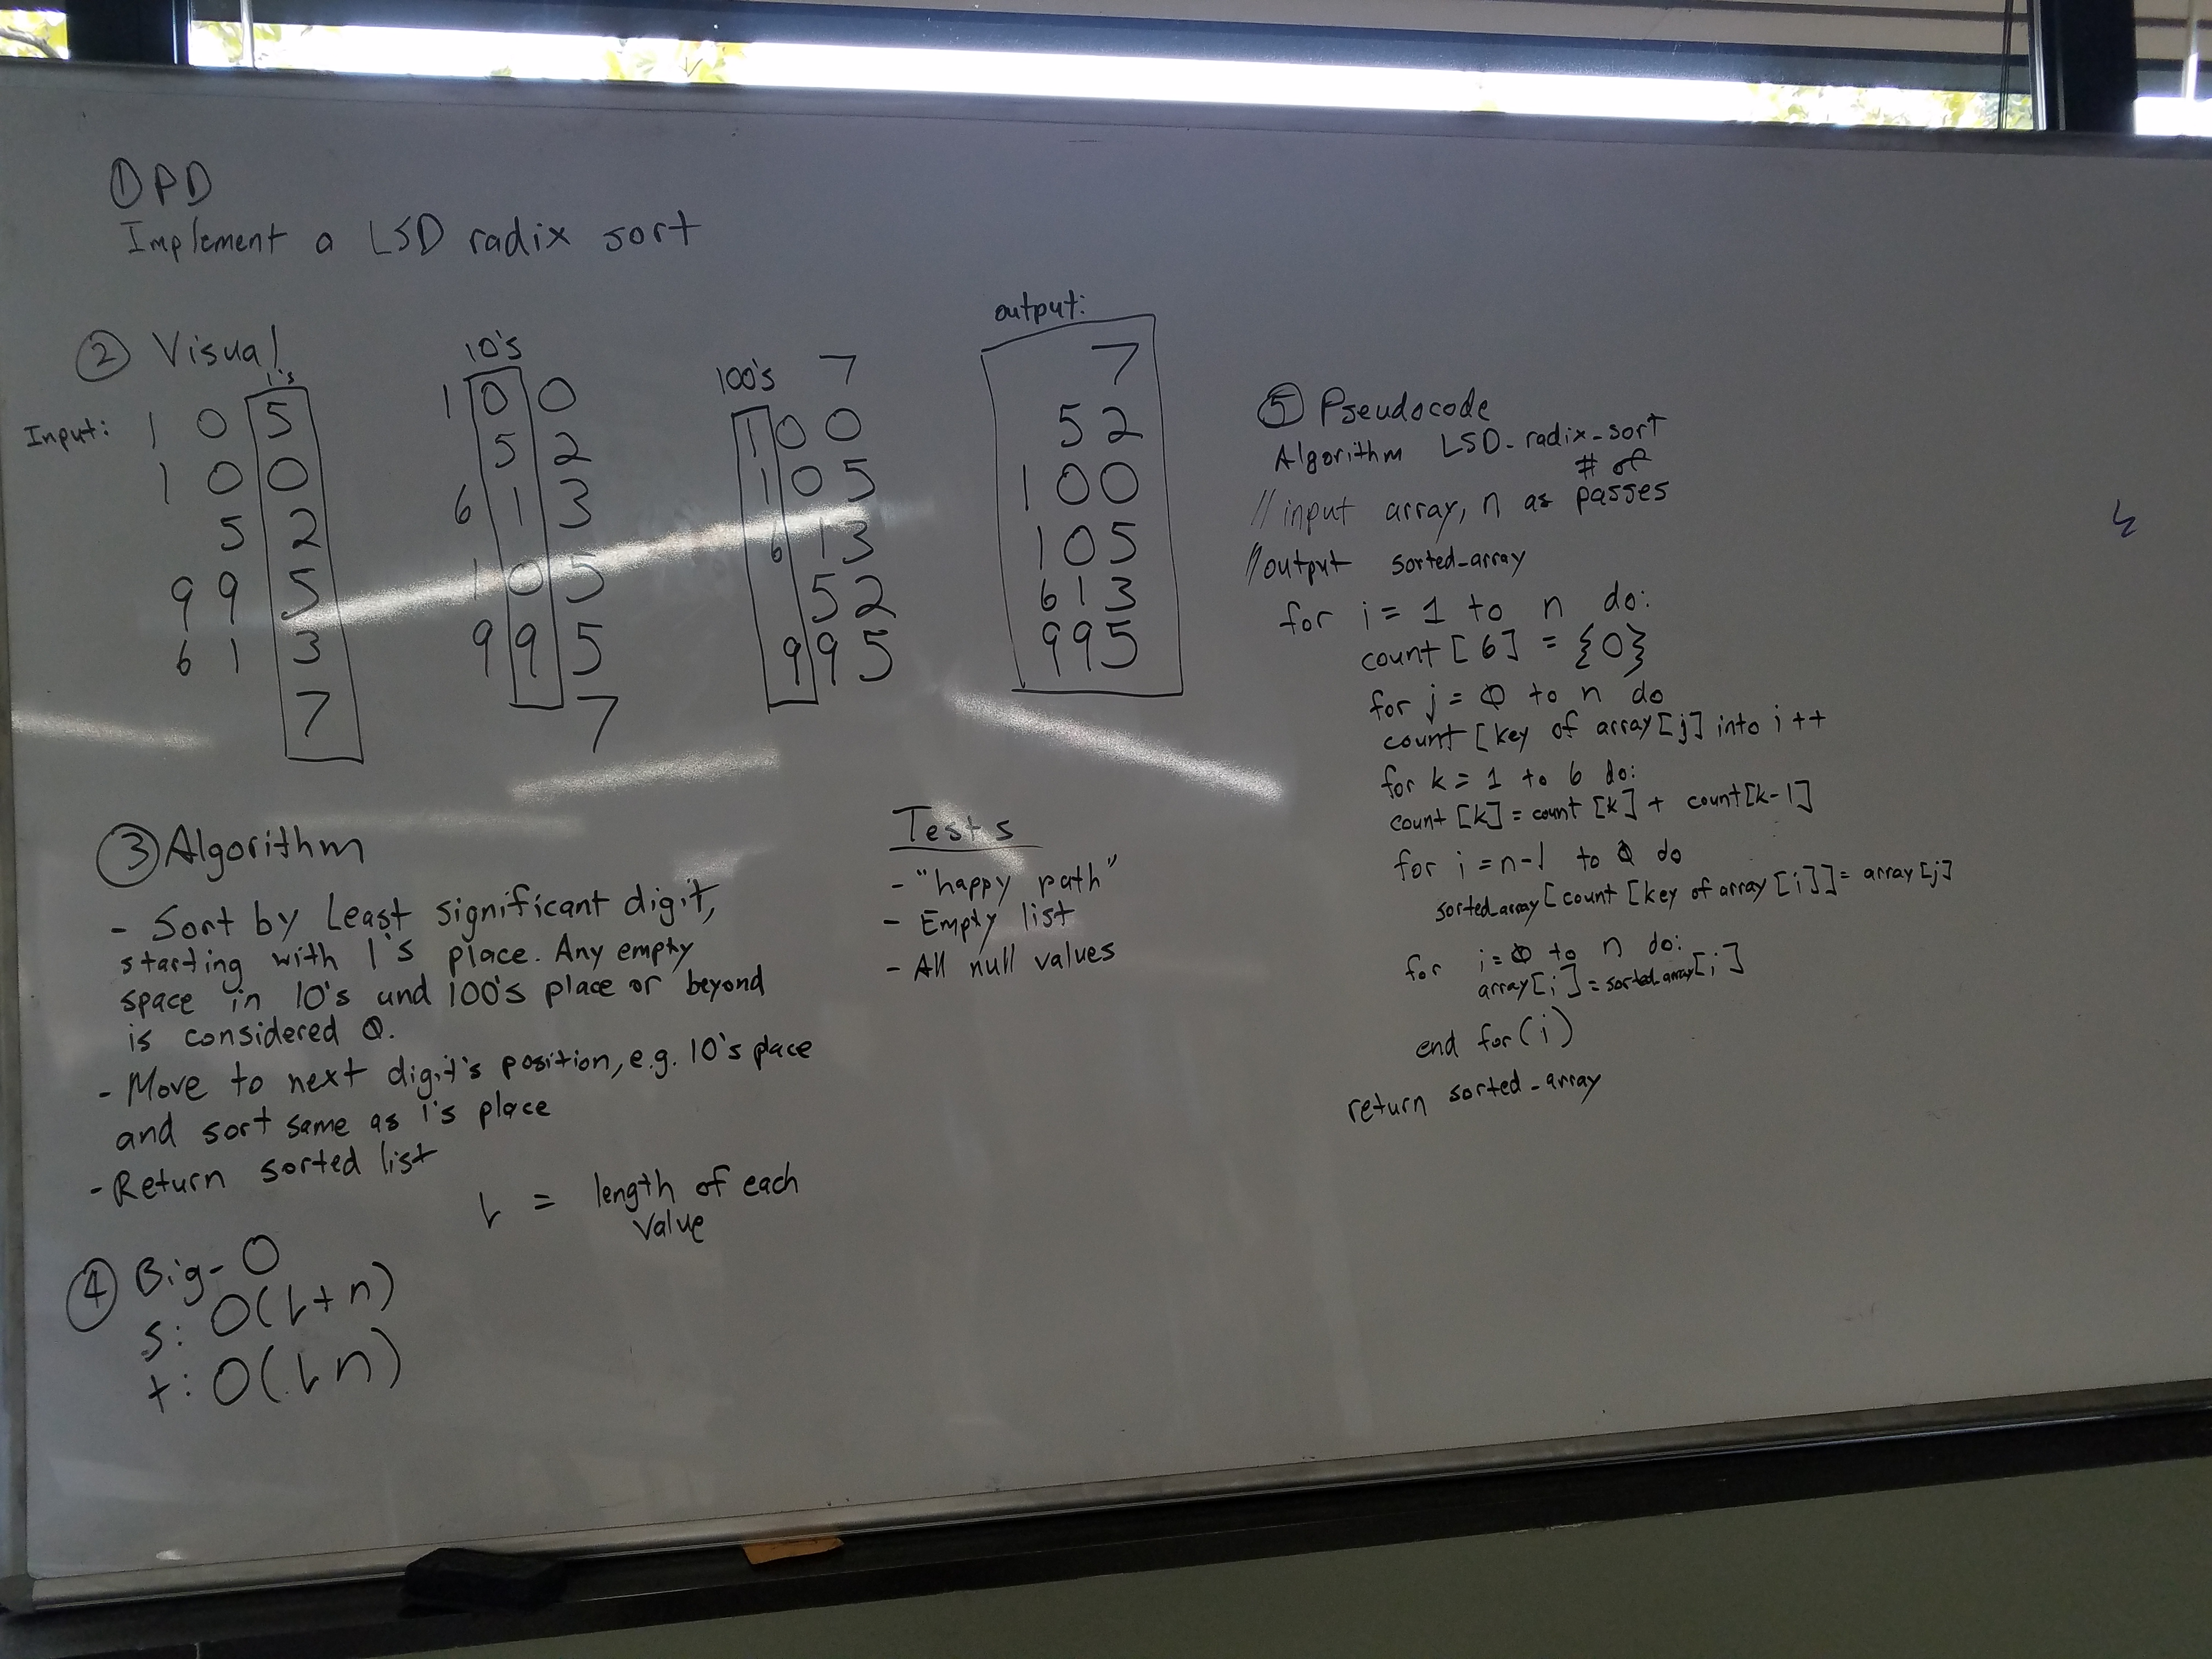 ① PD
Implement a LSD radix sort
② Visual
Input:
1's
1 0 5
1 0 0
5 2
9 9 5
6 1 3
7
10's
1 0 0
5 2
6 1 3
1 0 5
9 9 5
7
100's
7
1 0 0
1 0 5
6 1 3
5 2
9 9 5
output:
7
5 2
1 0 0
1 0 5
6 1 3
9 9 5
③ Algorithm
- Sort by Least significant digit,
starting with 1's place. Any empty
space in 10's and 100's place or beyond
is considered 0.
- Move to next digit's position, e.g. 10's place
and sort same as 1's place
- Return sorted list
L = length of each
value
④ Big-O
s: O(L+n)
t: O(Ln)
Tests
- "happy path"
- Empty list
- All null values
⑤ Pseudocode
Algorithm LSD-radix-sort
# of
// input array, n as passes
// output sorted-array
for i = 1 to n do:
count [6] = {0}
for j = 0 to n do
count [key of array[j] into i ++
for k = 1 to 6 do:
count [k] = count [k] + count[k-1]
for i = n-1 to 0 do
sorted_array [count [key of array [i]] = array [j]
for i = 0 to n do:
array[i] = sorted_array[i]
end for (i)
return sorted-array